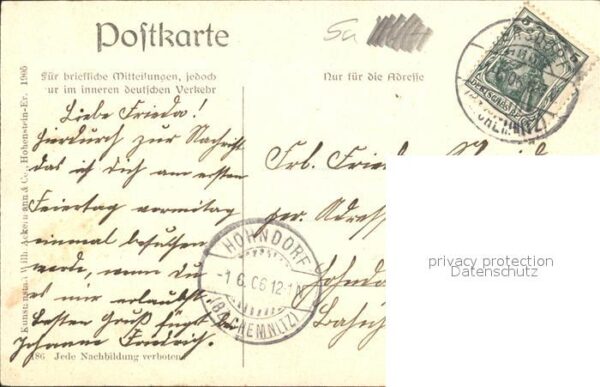 Postkarte
5a
Für briefliche Mitteilungen, jedoch
nur im inneren deutschen Verkehr
Nur für die Adresse
Liebe Frieda!
Hierdurch zur Nachricht
das ich dich am ersten
Feiertag vormittag
einmal besuchen
werde, wenn du
es mir erlaubst.
Besten Gruß
Johanne
Frl. Frieda
per. Adresse
Hohndo
Bahnh
HOHNDORF
-1.6.06.12-1N
(BZ. CHEMNITZ)
(BZ. CHEMNITZ)
privacy protection
Datenschutz
Kunstanstalt Wilh. Ackermann & Co., Hohenstein-Er. 1905
186 Jede Nachbildung verboten